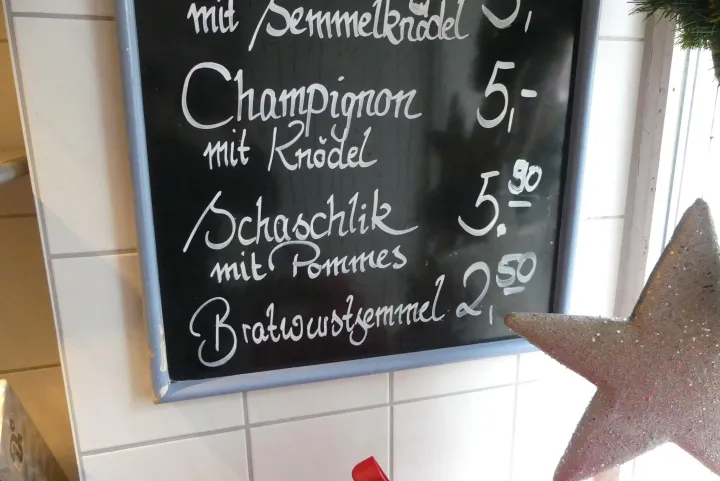 mit Semmelknödel 5,
Champignon 5,-
mit Knödel
Schaschlik 5.90
mit Pommes
Bratwurstsemmel 2,50